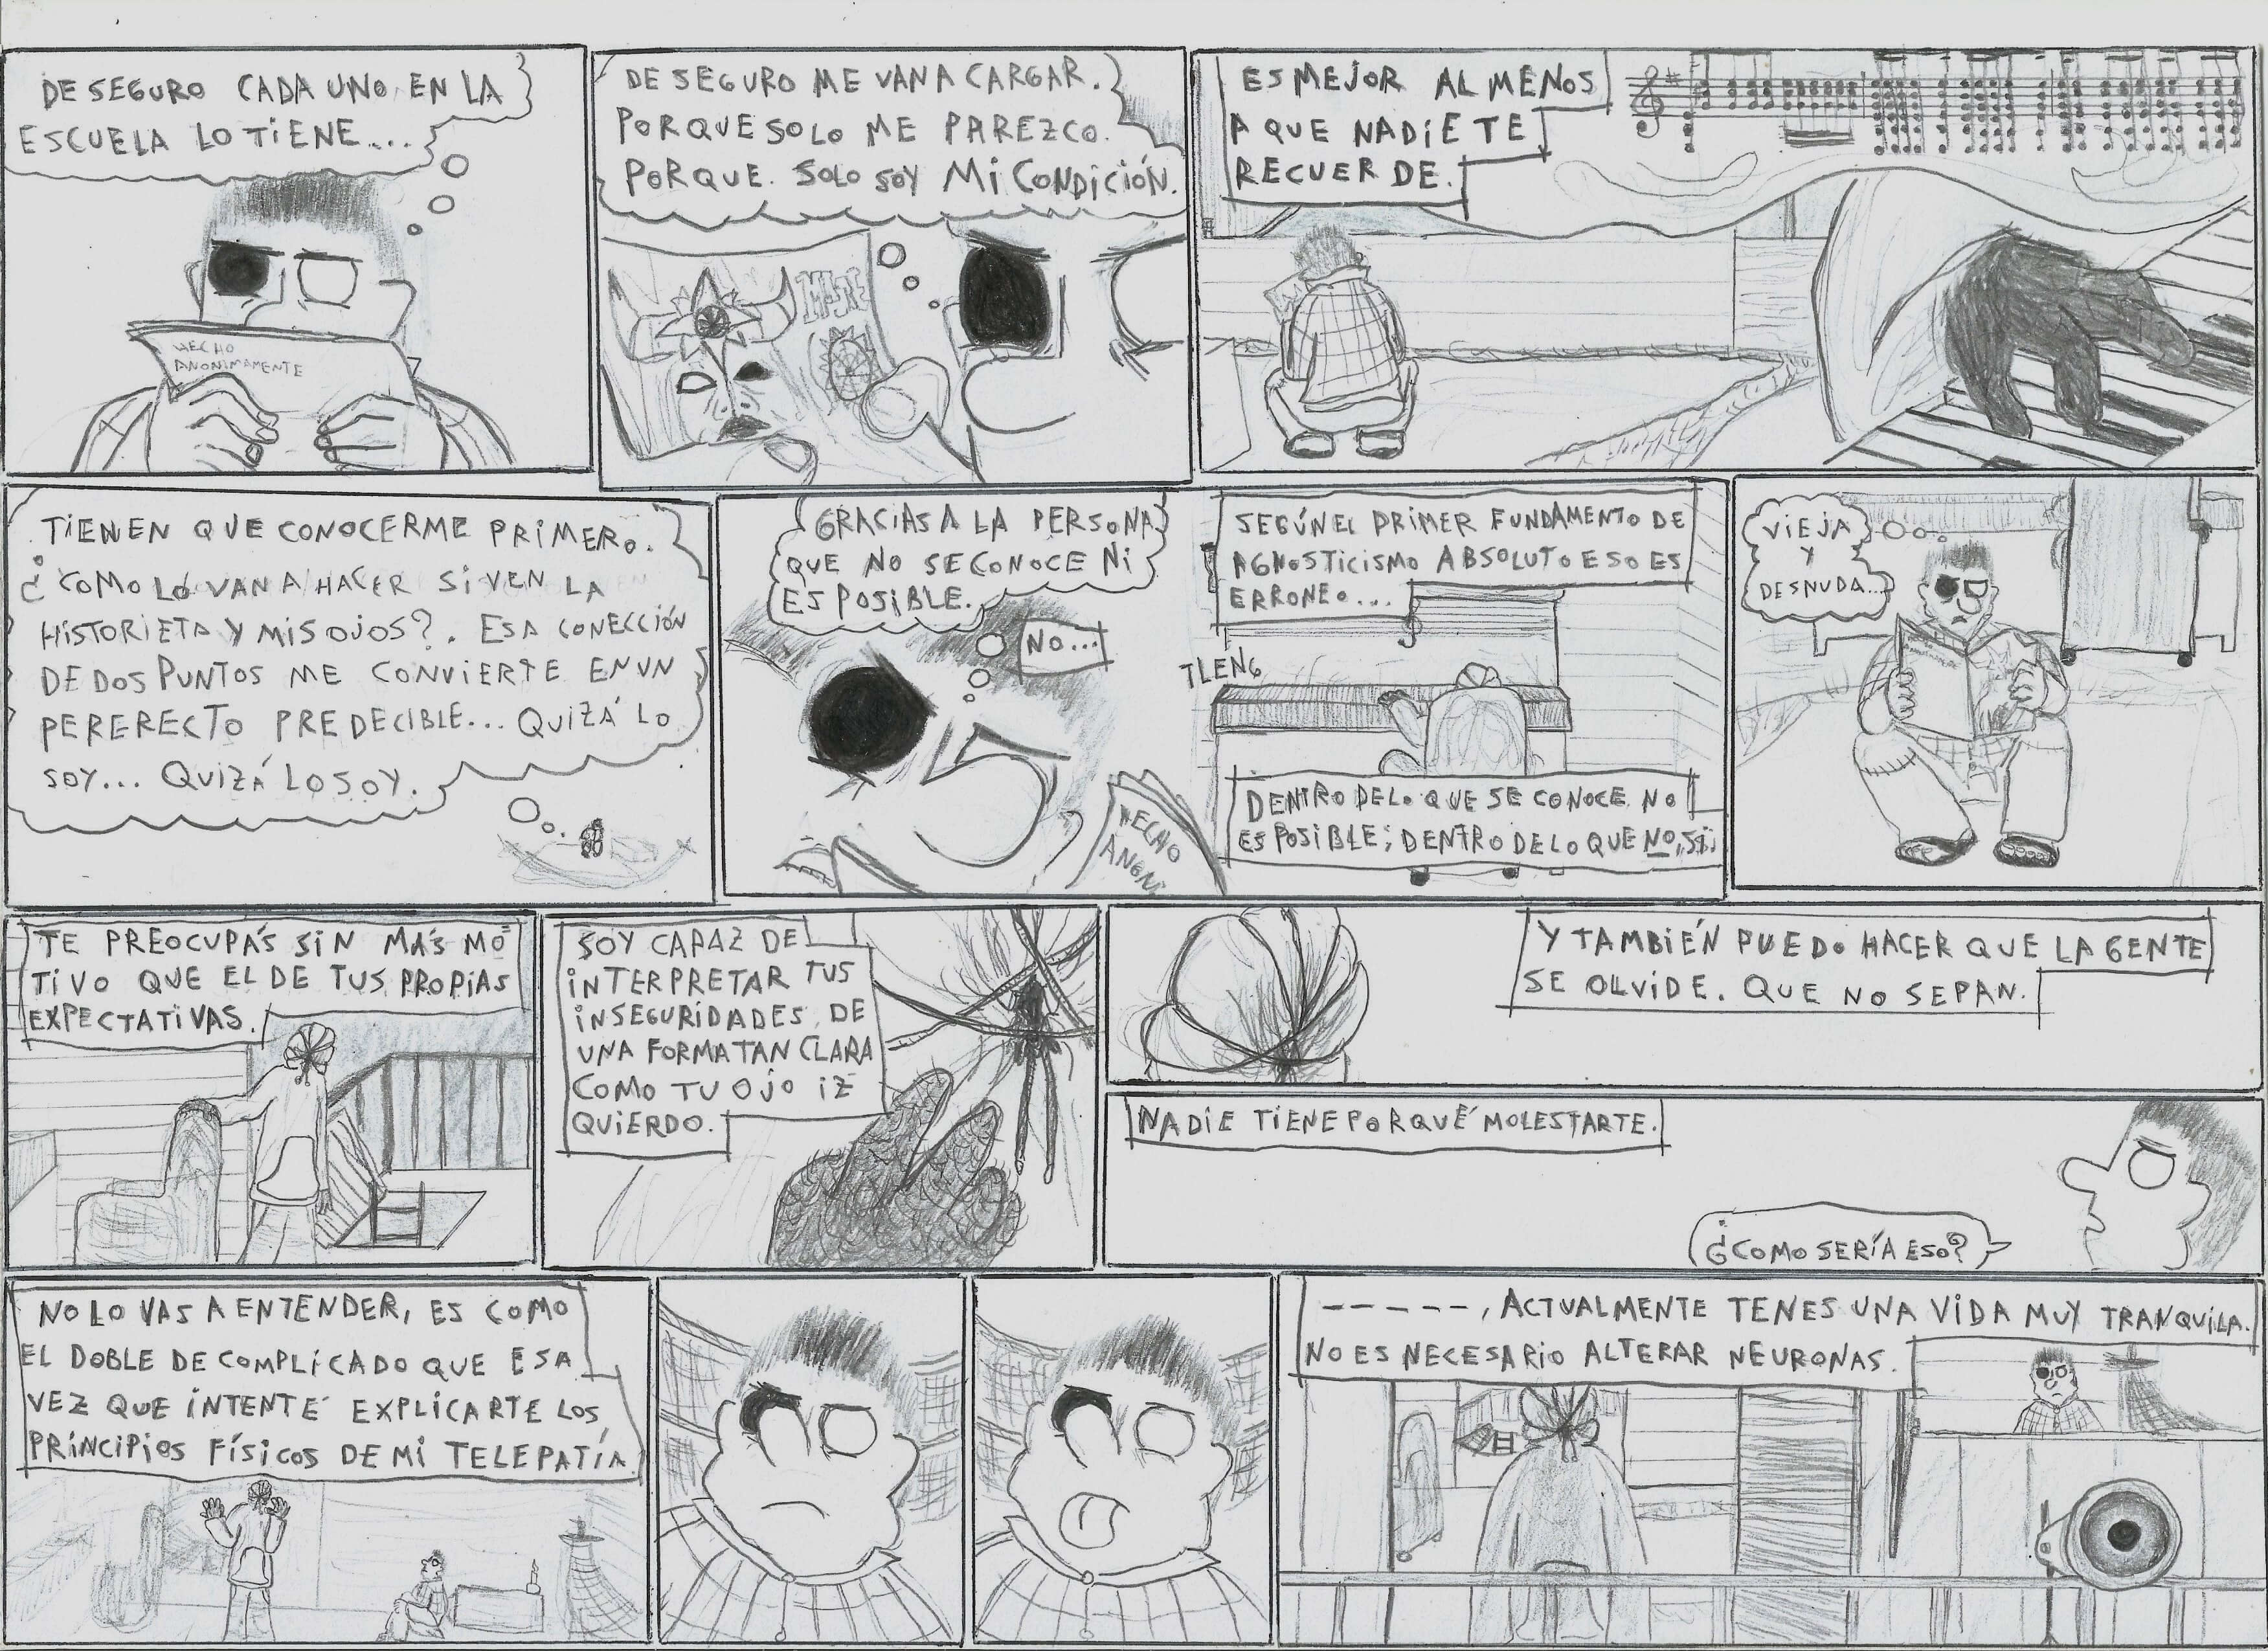 DE SEGURO CADA UNO EN LA
ESCUELA LO TIENE...
HECHO
ANONIMAMENTE
DE SEGURO ME VAN A CARGAR.
PORQUE SOLO ME PAREZCO.
PORQUE. SOLO SOY MI CONDICIÓN.
ES MEJOR AL MENOS
A QUE NADIE TE
RECUERDE.
TIENEN QUE CONOCERME PRIMERO.
¿COMO LO VAN A HACER SI VEN LA
HISTORIETA Y MIS OJOS?. ESA CONECCIÓN
DE DOS PUNTOS ME CONVIERTE EN UN
PERERECTO PREDECIBLE... QUIZÁ LO
SOY... QUIZÁ LO SOY.
GRACIAS A LA PERSONA
QUE NO SE CONOCE NI
ES POSIBLE.
NO...
HECHO
ANONI
SEGÚN EL PRIMER FUNDAMENTO DE
AGNOSTICISMO ABSOLUTO ESO ES
ERRONEO...
TLENG
DENTRO DE LO QUE SE CONOCE NO
ES POSIBLE; DENTRO DE LO QUE NO, SÍ.
VIEJA
Y
DESNUDA...
TE PREOCUPÁS SIN MÁS MO
TIVO QUE EL DE TUS PROPIAS
EXPECTATIVAS.
SOY CAPAZ DE
INTERPRETAR TUS
INSEGURIDADES DE
UNA FORMA TAN CLARA
COMO TU OJO IZ
QUIERDO.
Y TAMBIÉN PUEDO HACER QUE LA GENTE
SE OLVIDE. QUE NO SEPAN.
NADIE TIENE PORQUÉ MOLESTARTE.
¿COMO SERÍA ESO?
NO LO VAS A ENTENDER, ES COMO
EL DOBLE DE COMPLICADO QUE ESA
VEZ QUE INTENTÉ EXPLICARTE LOS
PRINCIPIOS FÍSICOS DE MI TELEPATÍA.
-----, ACTUALMENTE TENES UNA VIDA MUY TRANQUILA.
NO ES NECESARIO ALTERAR NEURONAS.